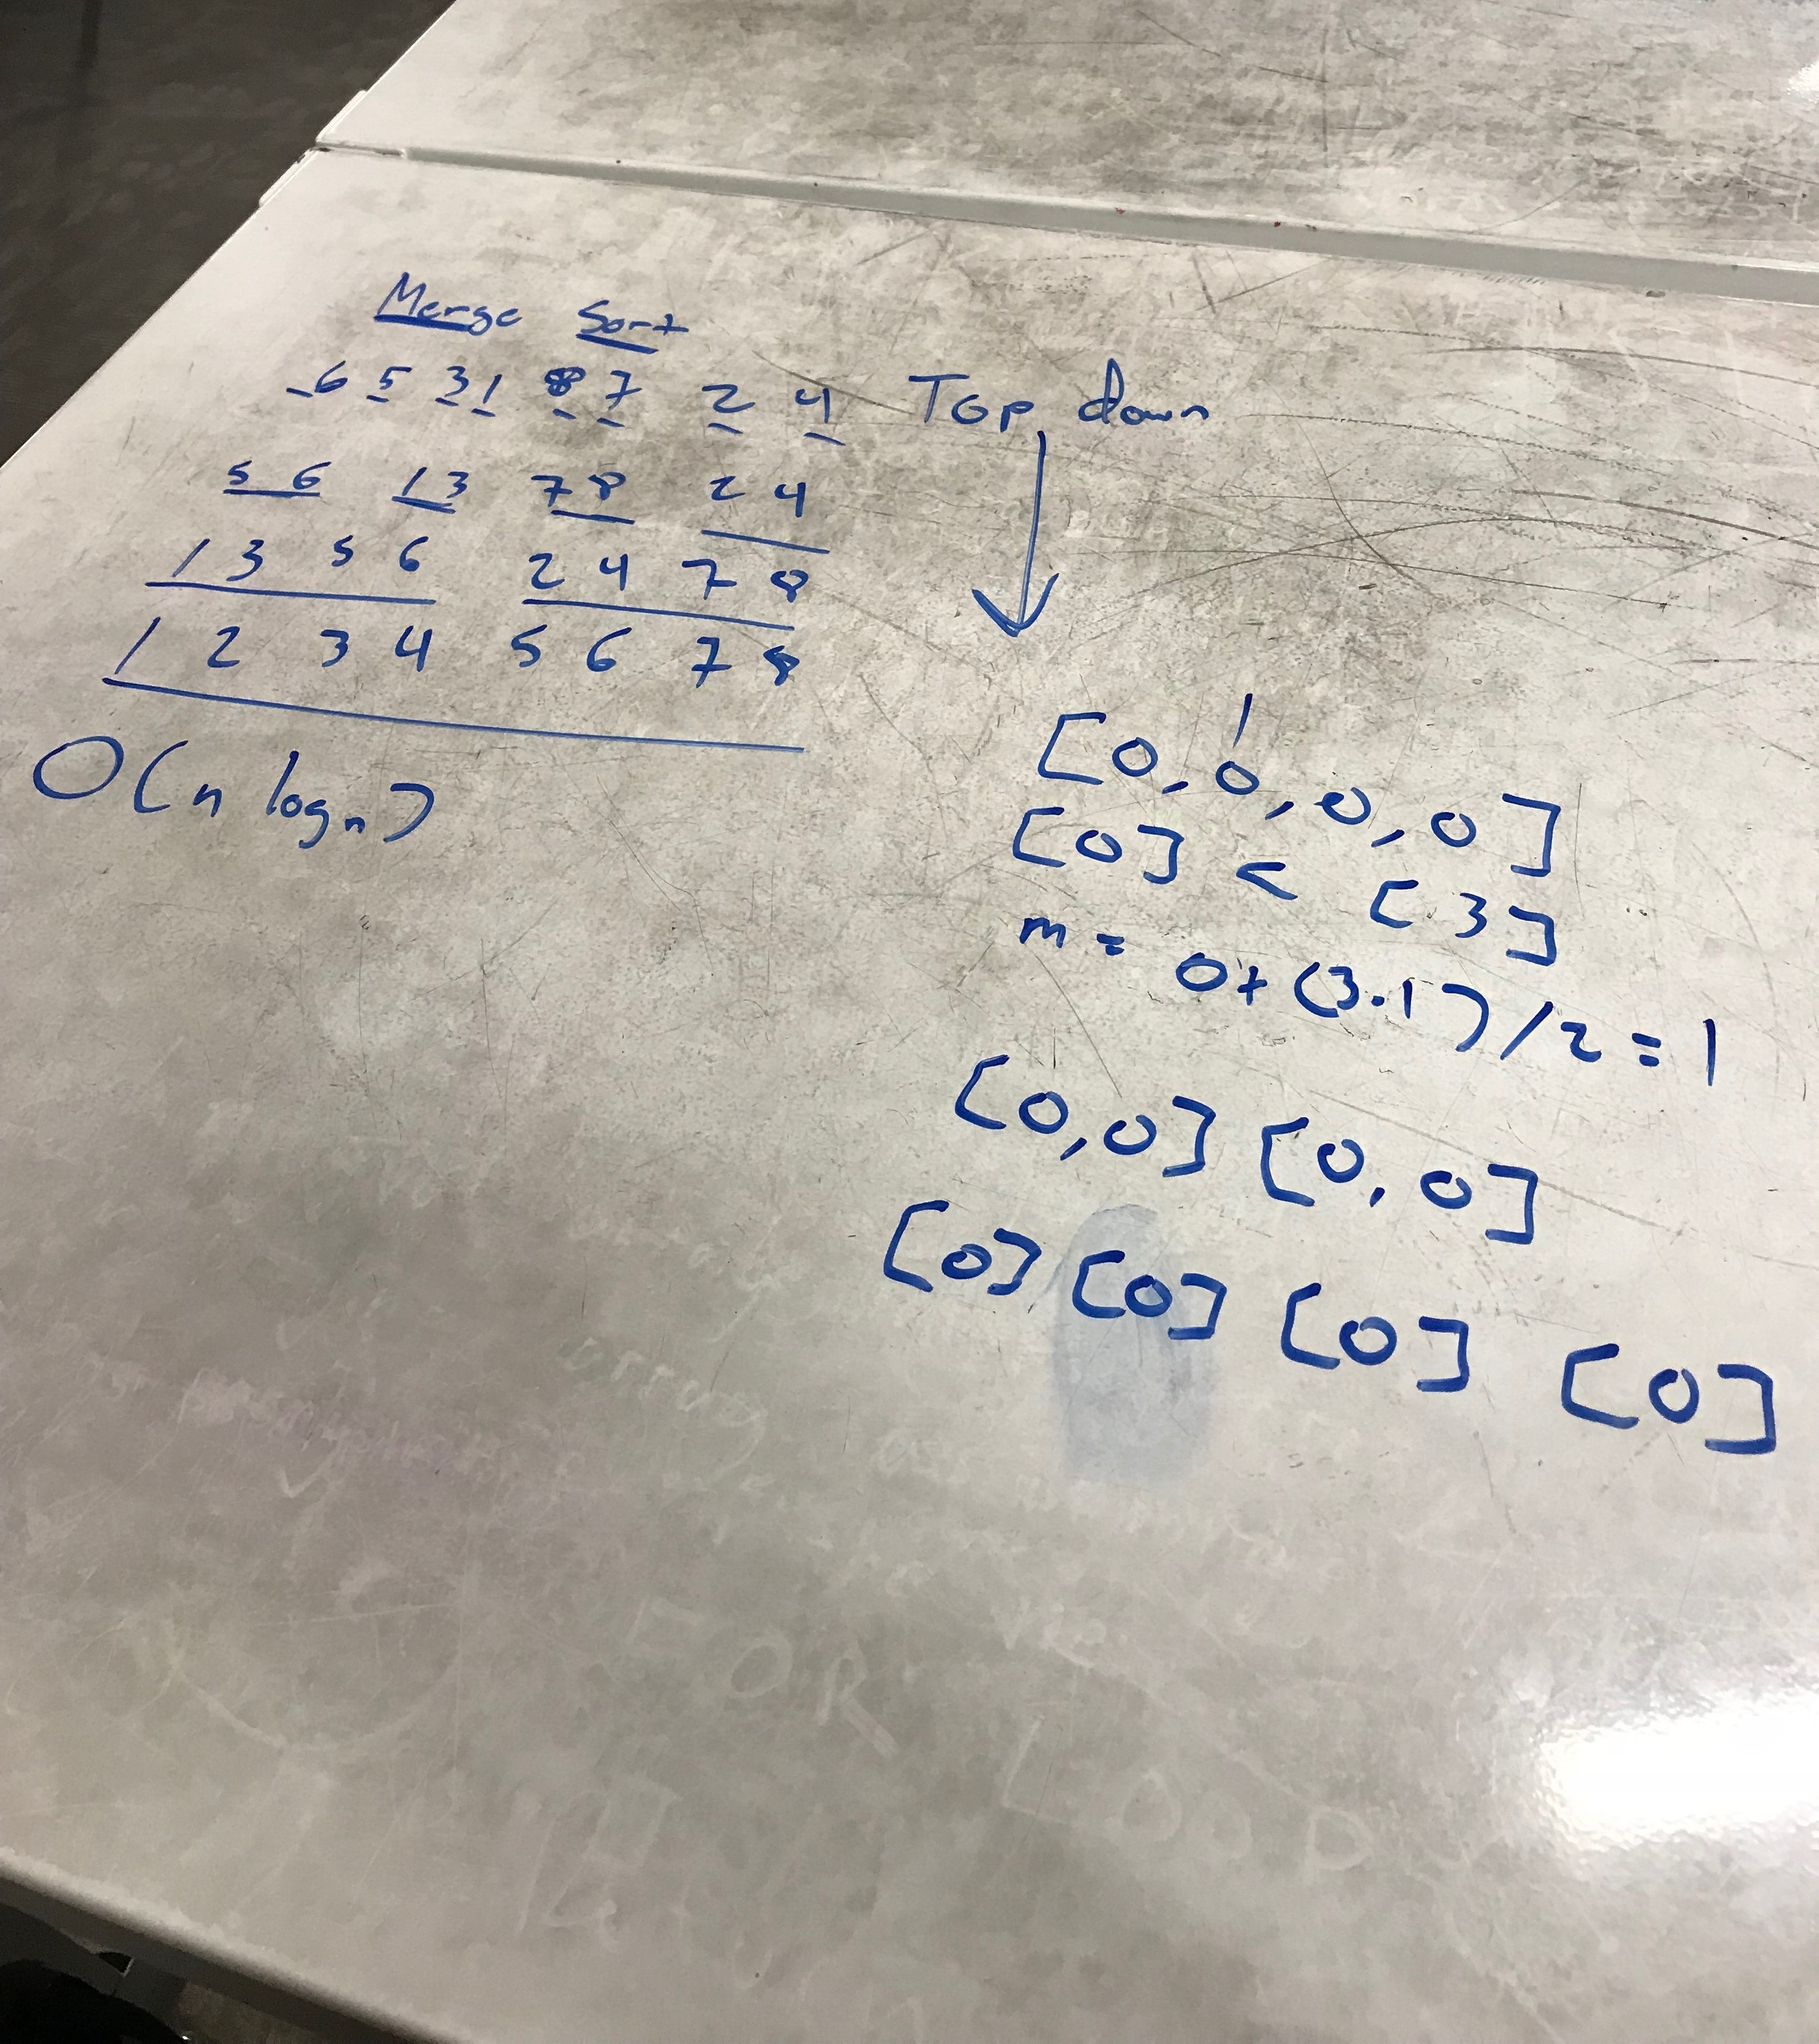 Merge Sort
6 5 3 1 8 7 2 4 Top down
5 6 1 3 7 8 2 4
1 3 5 6 2 4 7 8
1 2 3 4 5 6 7 8
O(n log n)
[0, 0, 0, 0]
[0] < [3]
m = 0+(3-1)/2=1
[0,0] [0,0]
[0] [0] [0] [0]
FOR LOOP